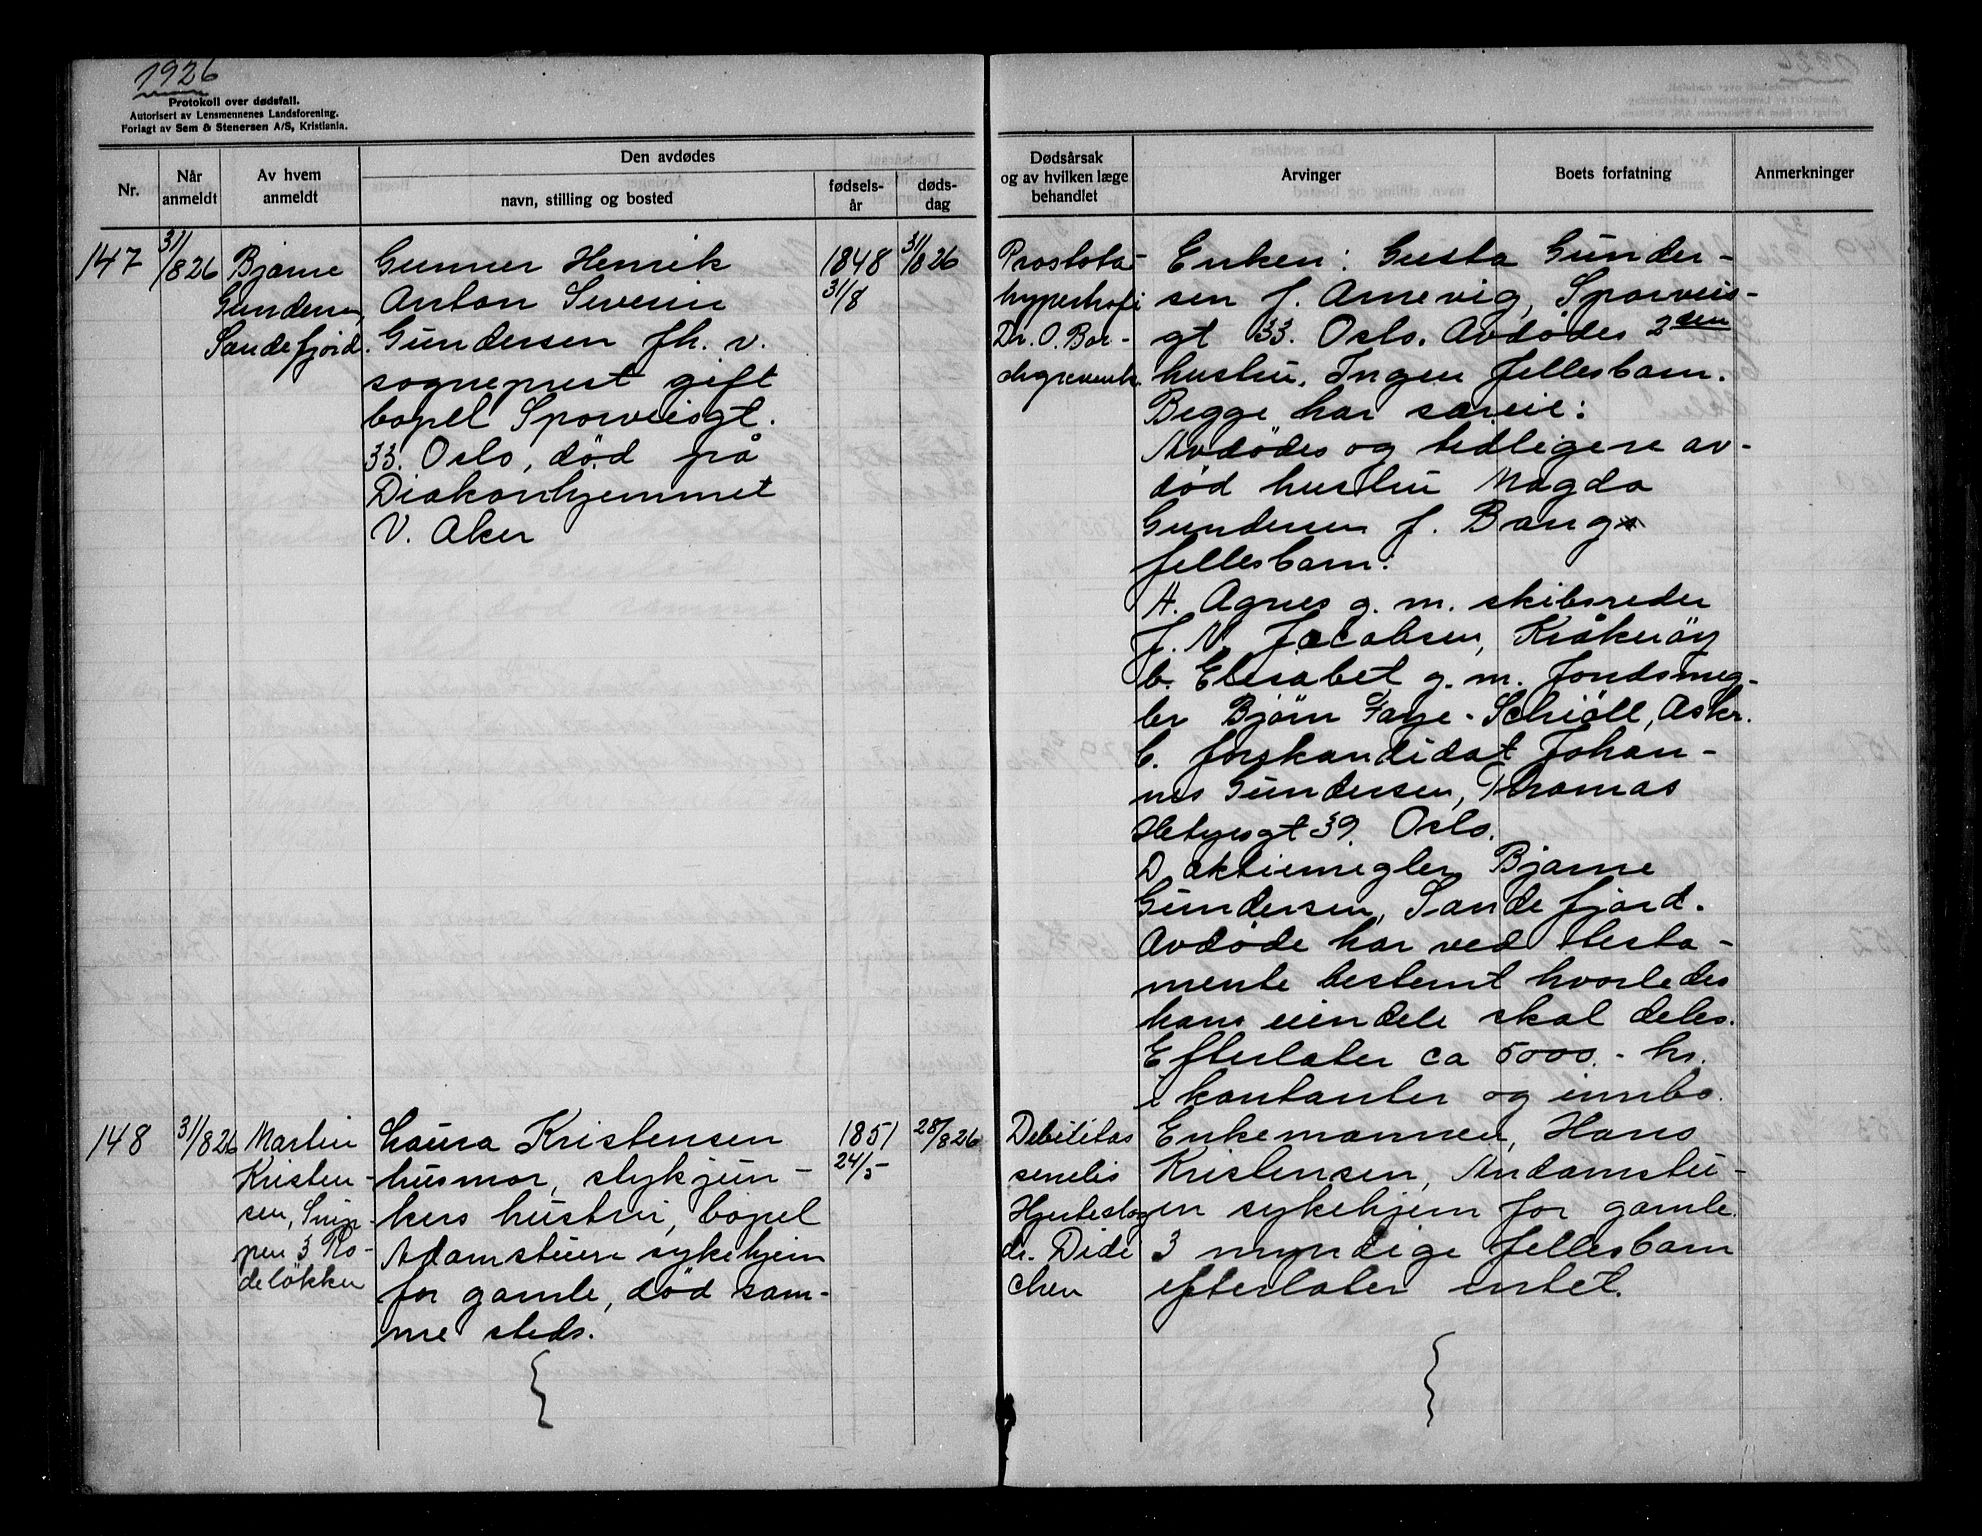 1926
Protokoll over dødsfall.
Autorisert av Lensmennenes Landsforening.
Forlagt av Sem & Stenersen A/S, Kristiania.
Nr.
Når anmeldt
Av hvem anmeldt
Den avdødes
navn, stilling og bosted
fødsels-år
døds-dag
Dødsårsak og av hvilken læge behandlet
Arvinger
Boets forfatning
Anmerkninger
147
31/8 26
Bjarne
Gundersen,
Sandefjord.
Gunner Henrik
Anton Severin
Gundersen fh. v.
sogneprest gift
bopel Sporveisgt.
33. Oslo, død på
Diakonhjemmet
V. Aker
1848
31/8
31/8 26
Prostata-
hypertrofi
Dr. O. Bor-
chgrevink.
Enken: Gusta Gunder-
sen f. Arnevig, Sporveis-
gt 33. Oslo. Avdødes 2den
hustru. Ingen fellesbarn.
Begge har særeie:
Avdødes og tidligere av-
død hustru Magda
Gundersen f. Bang
fellesbarn:
A. Agnes g. m. skibsreder
J. N. Jacobsen, Kråkerøy
b. Elisabet g. m. fondsmeg-
ler Bjørn Faye-Schiøll, Asker.
C. forskandidat Johan-
nes Gundersen, Thomas
Heftyesgt 39. Oslo.
D aktiemegler Bjarne
Gundersen, Sandefjord.
Avdøde har ved testa-
mente bestemt hvorledes
hans eiendele skal deles.
Efterlater ca 5000.- kr.
i kontanter og innbo.
148
31/8 26
Martin
Kristen-
sen, Snip-
pen 3 Ro-
deløkken
Laura Kristensen
husmor, stykjun-
kers hustru, bopel
Adamstuen sykehjem
for gamle, død sam-
me steds.
1851
24/5
28/8 26
Debilitas
senelis
Hjerteslag
dr. Dide
chen
Enkemannen, Hans
Kristensen, Andamstu-
en sykehjem for gamle.
3 myndige fellesbarn
efterlater intet.